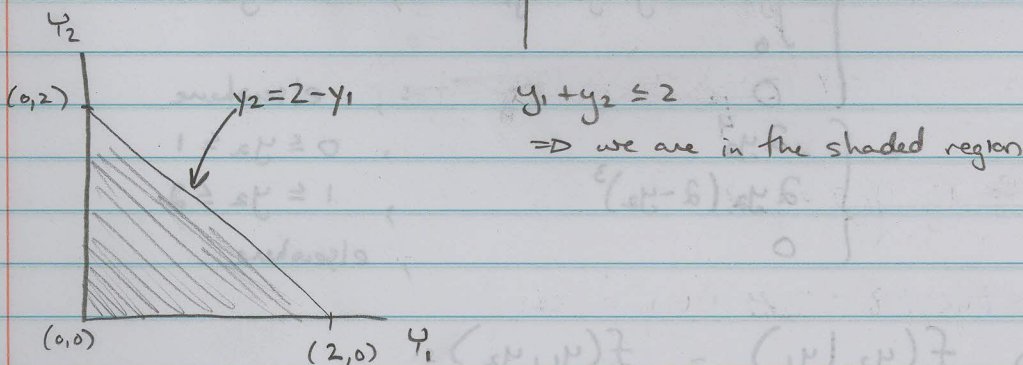 Y₂
(0,2)
y₂ = 2 - y₁
y₁ + y₂ ≤ 2
⇒ we are in the shaded region
(0,0)
(2,0)
Y₁